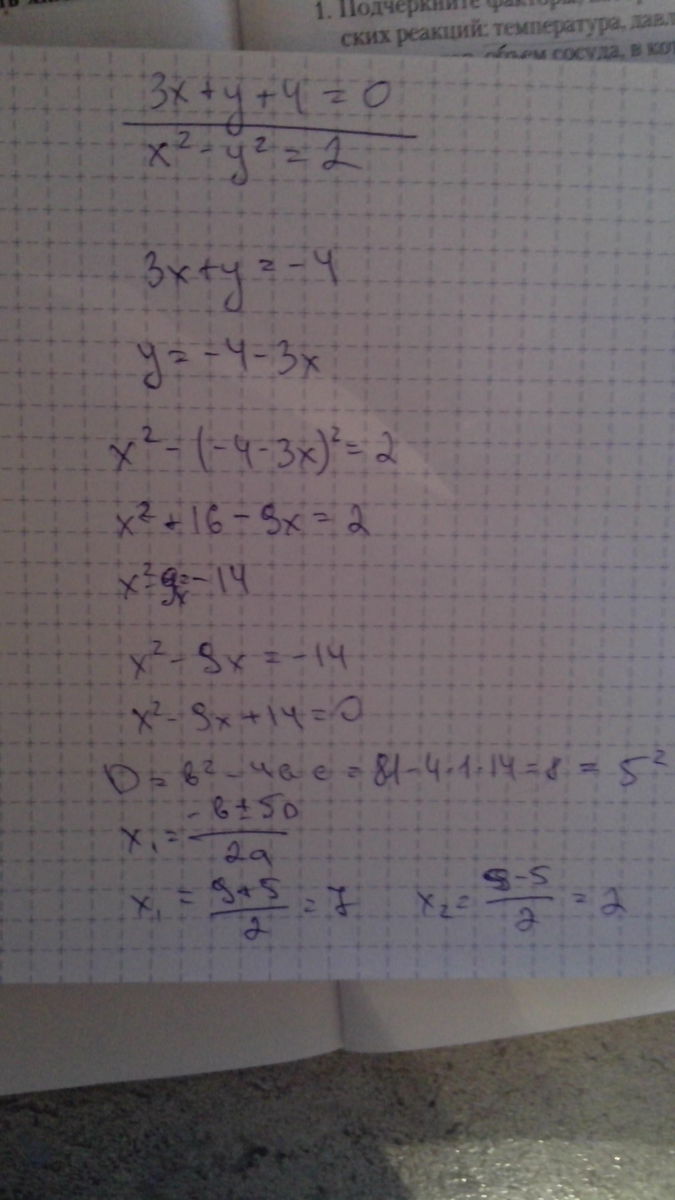 1. Подчеркните факторы,
ских реакций: температура, давл
объем сосуда, в кот
3x+y+4=0
x²-y²=2
3x+y=-4
y=-4-3x
x²-(-4-3x)²=2
x²+16-9x=2
x²-9x=-14
x²-9x=-14
x²-9x+14=0
D=b²-4ac=81-4·1·14=8=5²
x₁=-b±√D/2a
x₁=9+5/2=7 x₂=9-5/2=2